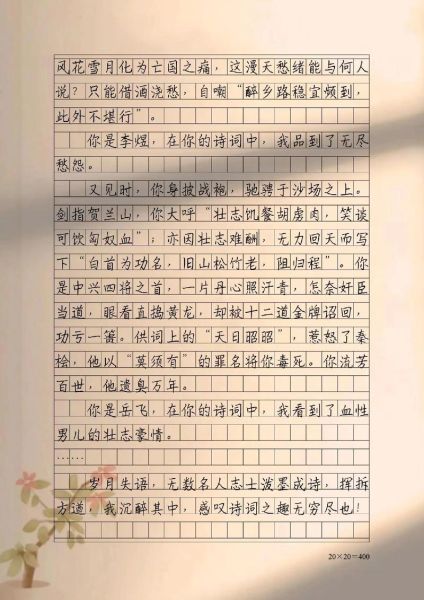 风花雪月化为亡国之痛，这漫天愁绪能与何人
说？只能借酒浇愁，自嘲“醉乡路稳宜频到，
此外不堪行”。
你是李煜，在你的诗词中，我品到了无尽
愁怨。
又见时，你身披战袍，驰骋于沙场之上。
剑指贺兰山，你大呼“壮志饥餐胡虏肉，笑谈
可饮匈奴血”；亦因壮志难酬，无力回天而写
下“白首为功名，旧山松竹老，阻归程”。你
是中兴四将之首，一片丹心照汗青，怎奈奸臣
当道，眼看直捣黄龙，却被十二道金牌诏回，
功亏一篑。供词上的“天日昭昭”，惹怒了秦
桧，他以“莫须有”的罪名将你毒死。你流芳
百世，他遗臭万年。
你是岳飞，在你的诗词中，我看到了血性
男儿的壮志豪情。
……
岁月失语，无数名人志士泼墨成诗，挥拆
方道，我沉醉其中，感叹诗词之趣无穷尽也！
20×20=400